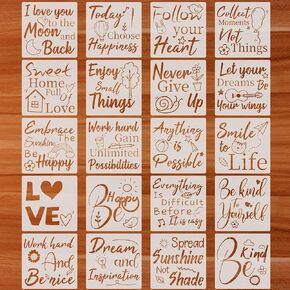 I love you
to the
Moon
and
Back
Today
I Choose
Happiness
Follow
your
Heart
Collect
Moments
Not
Things
Sweet
Home
Full
of
Love
Enjoy
Small
Things
Never
Give
Up
Let your
Dreams
Be
your wings
Embrace
The
Sunshine
Be
Happy
Work hard
Gain
Unlimited
Possibilities
Anything
is
Possible
Smile
to
Life
LOVE
Be
Happy
Everything
Is
Difficult
Before
It is easy
Be kind
to
Yourself
Work hard
And
Be nice
Dream
and
Inspiration
Spread
Sunshine
Not
Shade
Be
Kind